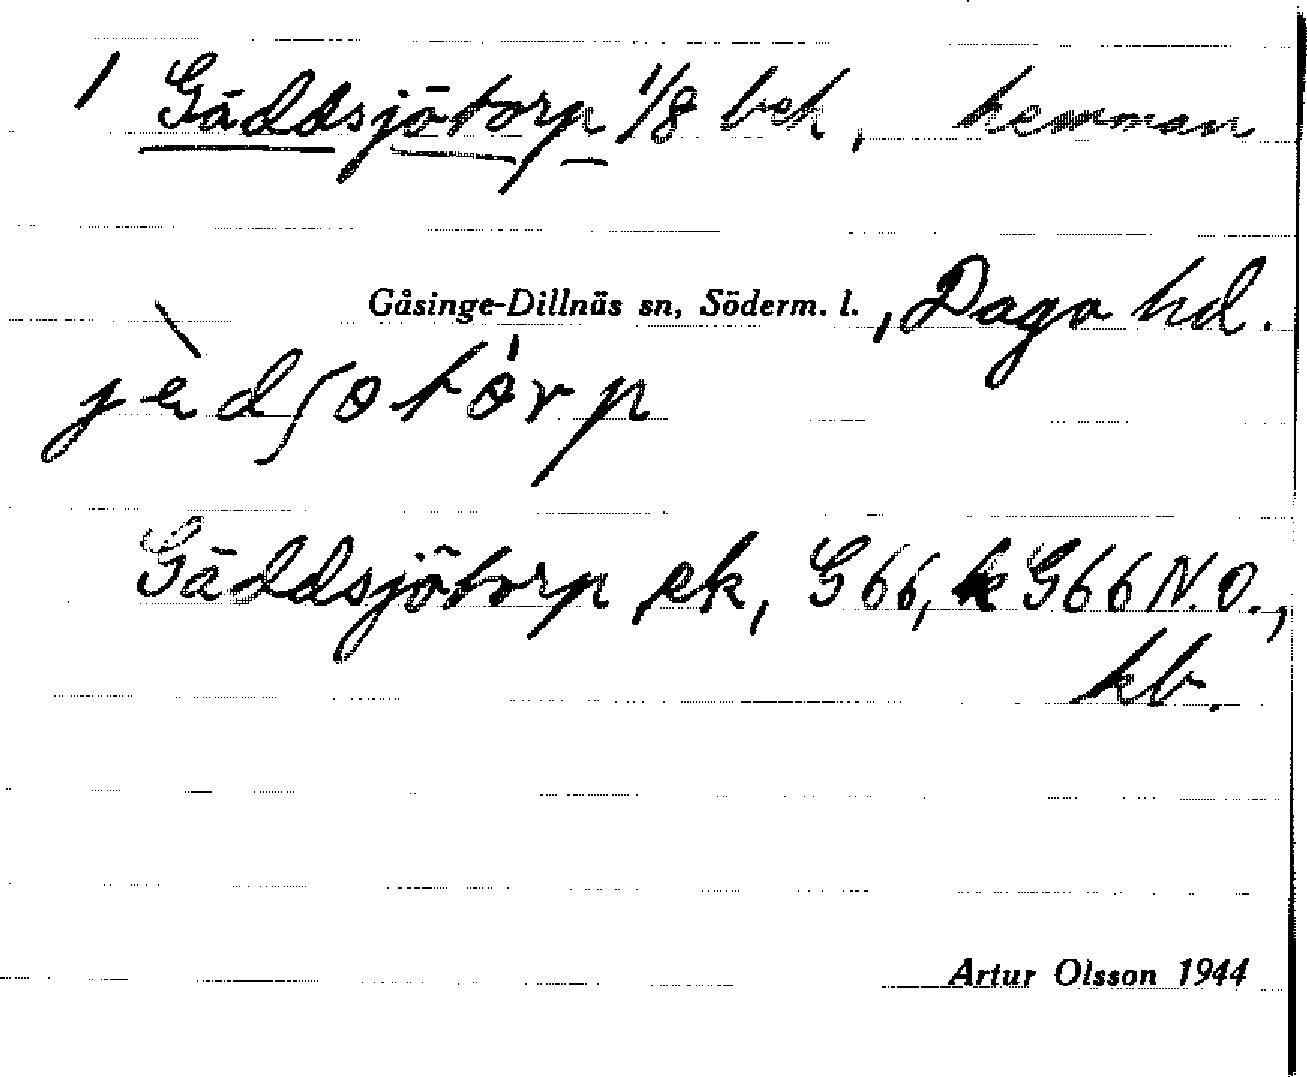 1 Gäddsjötorp 1/8 beh, hemman
Gåsinge-Dillnäs sn, Söderm. l., Daga hd.
Gäddsjötorp, ek, G66, k G66 N.O.,
kb.
Artur Olsson 1944